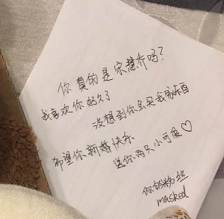 你真的是宋慧乔吗？
我喜欢你好久了
没想到你会买我东西
希望你新婚快乐
送你两只小可爱♡
你的粉丝
masked